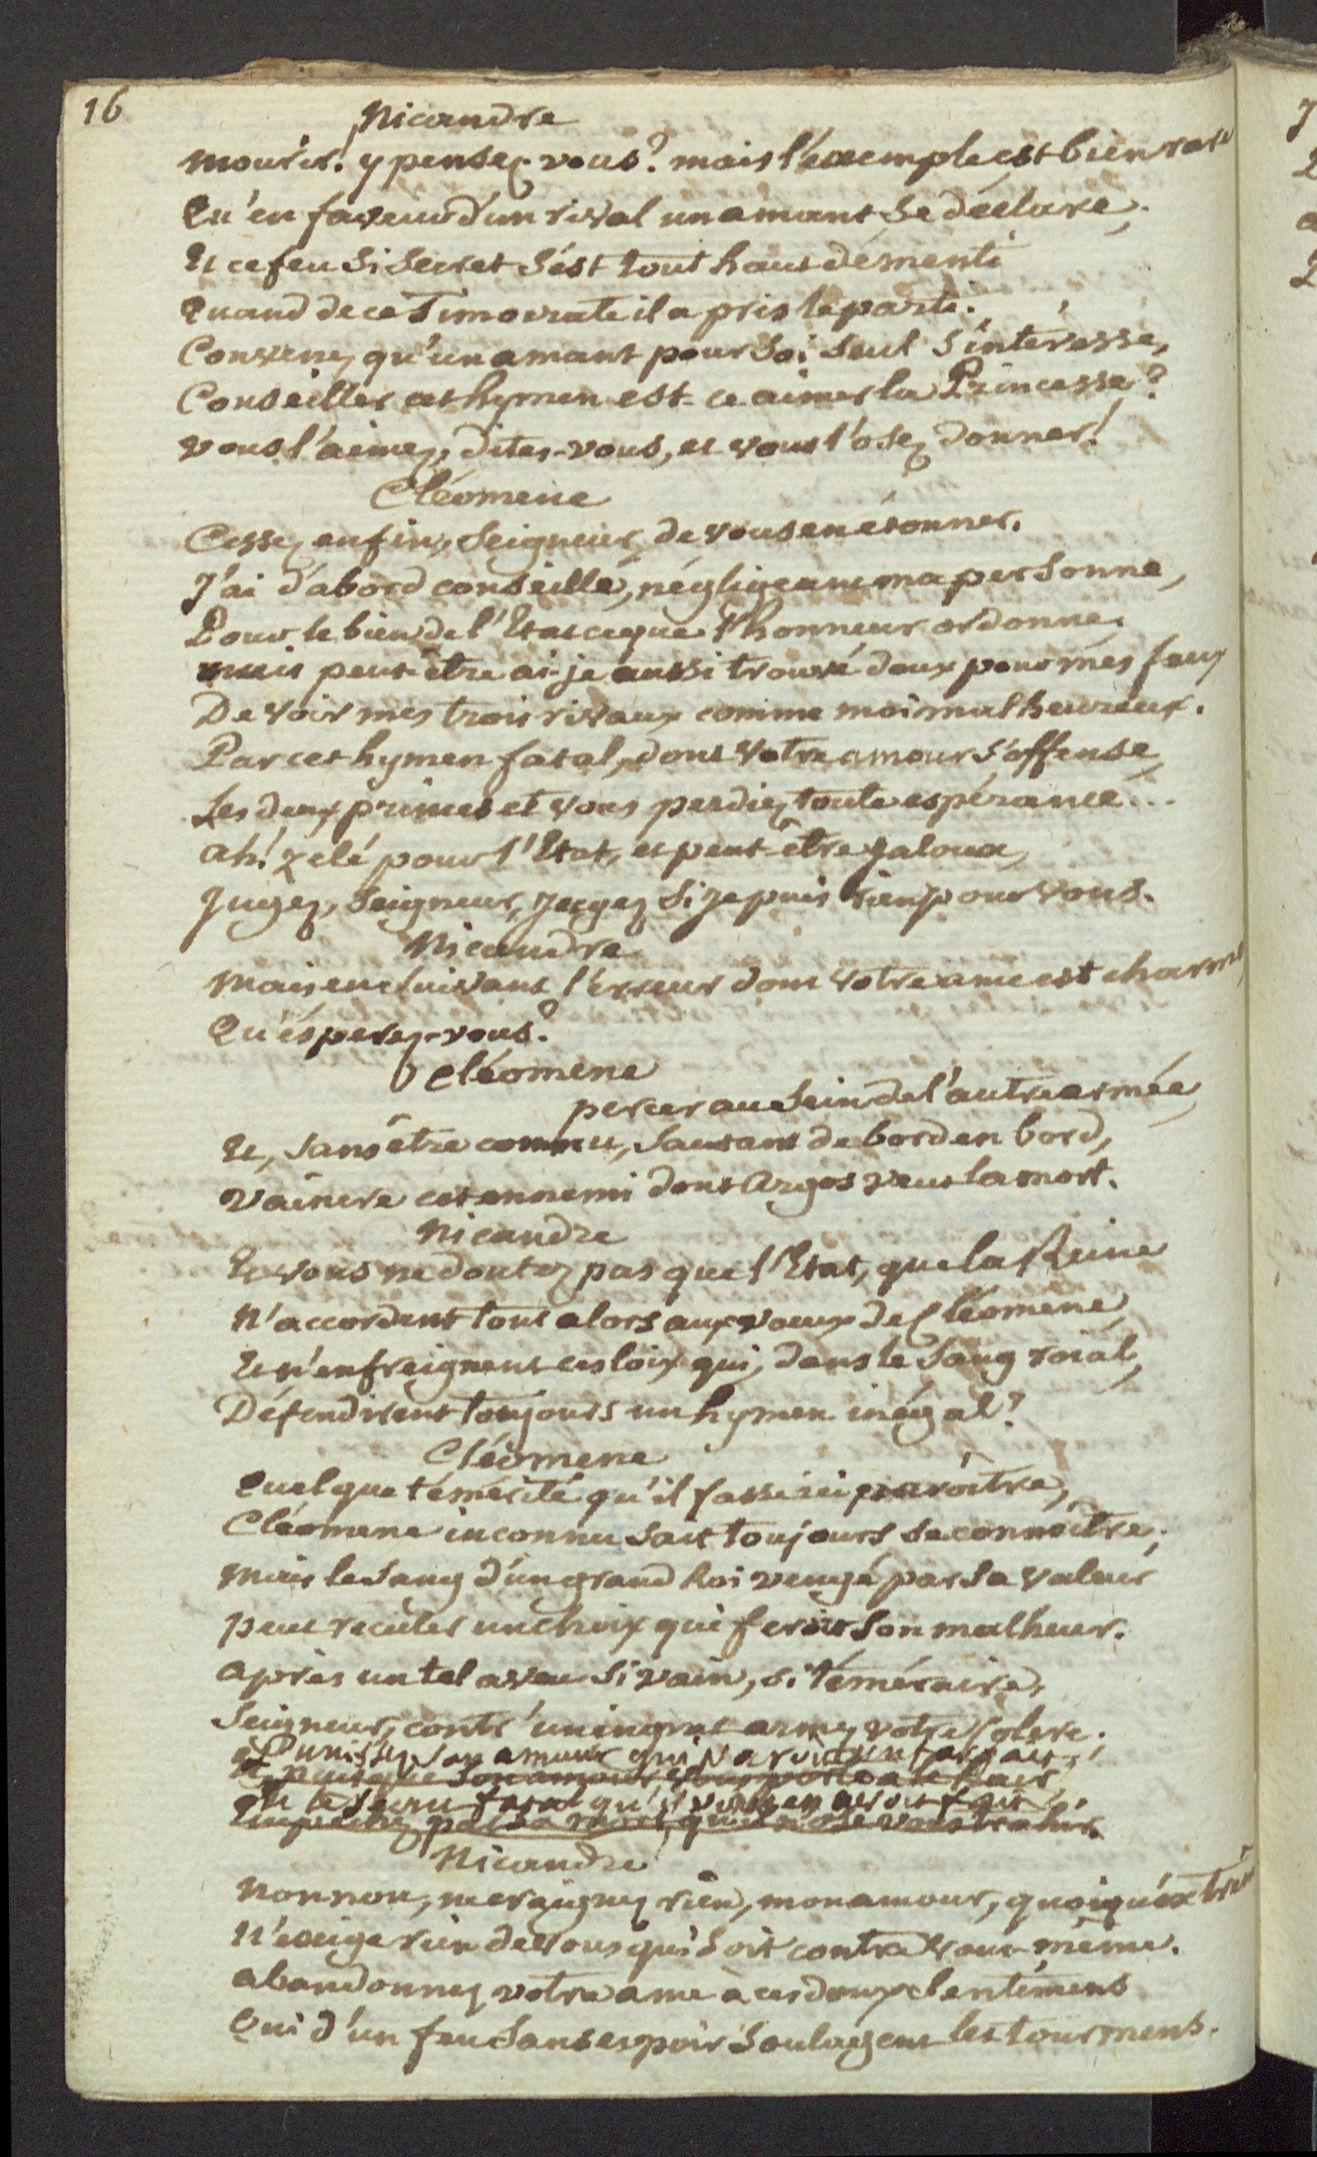 16
Nicandre
mourir! y pensez-vous? mais l'exemple est bien rare
Qu'en faveur d'un rival un amant se déclare,
Et ce feu si secret s'est tout haut démenti
Quand de ce Timocrate il a pris le parti.
Convenez qu'un amant pour soi seul s'intéresse,
Conseiller cet hymen est-ce aimer la Princesse?
vous l'aimez, dites-vous, et vous l'osez donner!
Cléomene
Cessez enfin, Seigneur, de vous en étonner.
J'ai d'abord conseillé, négligeant ma personne,
Pour le bien de l'Etat ce que l'honneur ordonne.
mais peut-être ai-je aussi trouvé doux pour mes feux
De voir mes trois rivaux comme moi malheureux.
Par cet hymen fatal, dont votre amour s'offense,
Les deux princes et vous perdiez toute espérance...
ah! zelé pour l'Etat, et peut-être jaloux,
Jugez, Seigneur, jugez si je puis rien pour vous.
Nicandre
Mais en suivant l'erreur dont votre ame est charmée
Qu'esperez-vous?
Cléomene
percer au sein de l'autre armée
Et, sans être connu, sautant de bord en bord,
vaincre cet ennemi dont Argos veut la mort.
Nicandre
Et vous ne doutez pas que l'Etat, que la Reine
N'accordent tout alors aux voeux de Cléomene,
Et n'enfreignent ces loix qui, dans le sang roial,
Défendirent toujours un hymen inégal?
Cléomene
Quelque témérité qu'il fasse ici paroître,
Cléomene inconnu sait toujours se connoître;
Mais le sang d'un grand Roi vengé par sa valeur
peut reculer un choix qui feroit son malheur.
après un tel aveu si vain, si téméraire,
Seigneur, contr'un ingrat armez votre colere.
Punissez son amour qui
Et puisque son amour vous porte a le haïr,
Et le secret fatal qu'il vous en avoit fait.
Empechez par sa mort, qu'il n'ose vous trahir.
Nicandre
Non non, ne craignez rien, mon amour, quoiqu'extrême
N'exige rien de vous qui soit contre vous-même.
abandonnez votre ame à ces doux sentimens
Qui d'un feu sans espoir soulagent les tourmens.